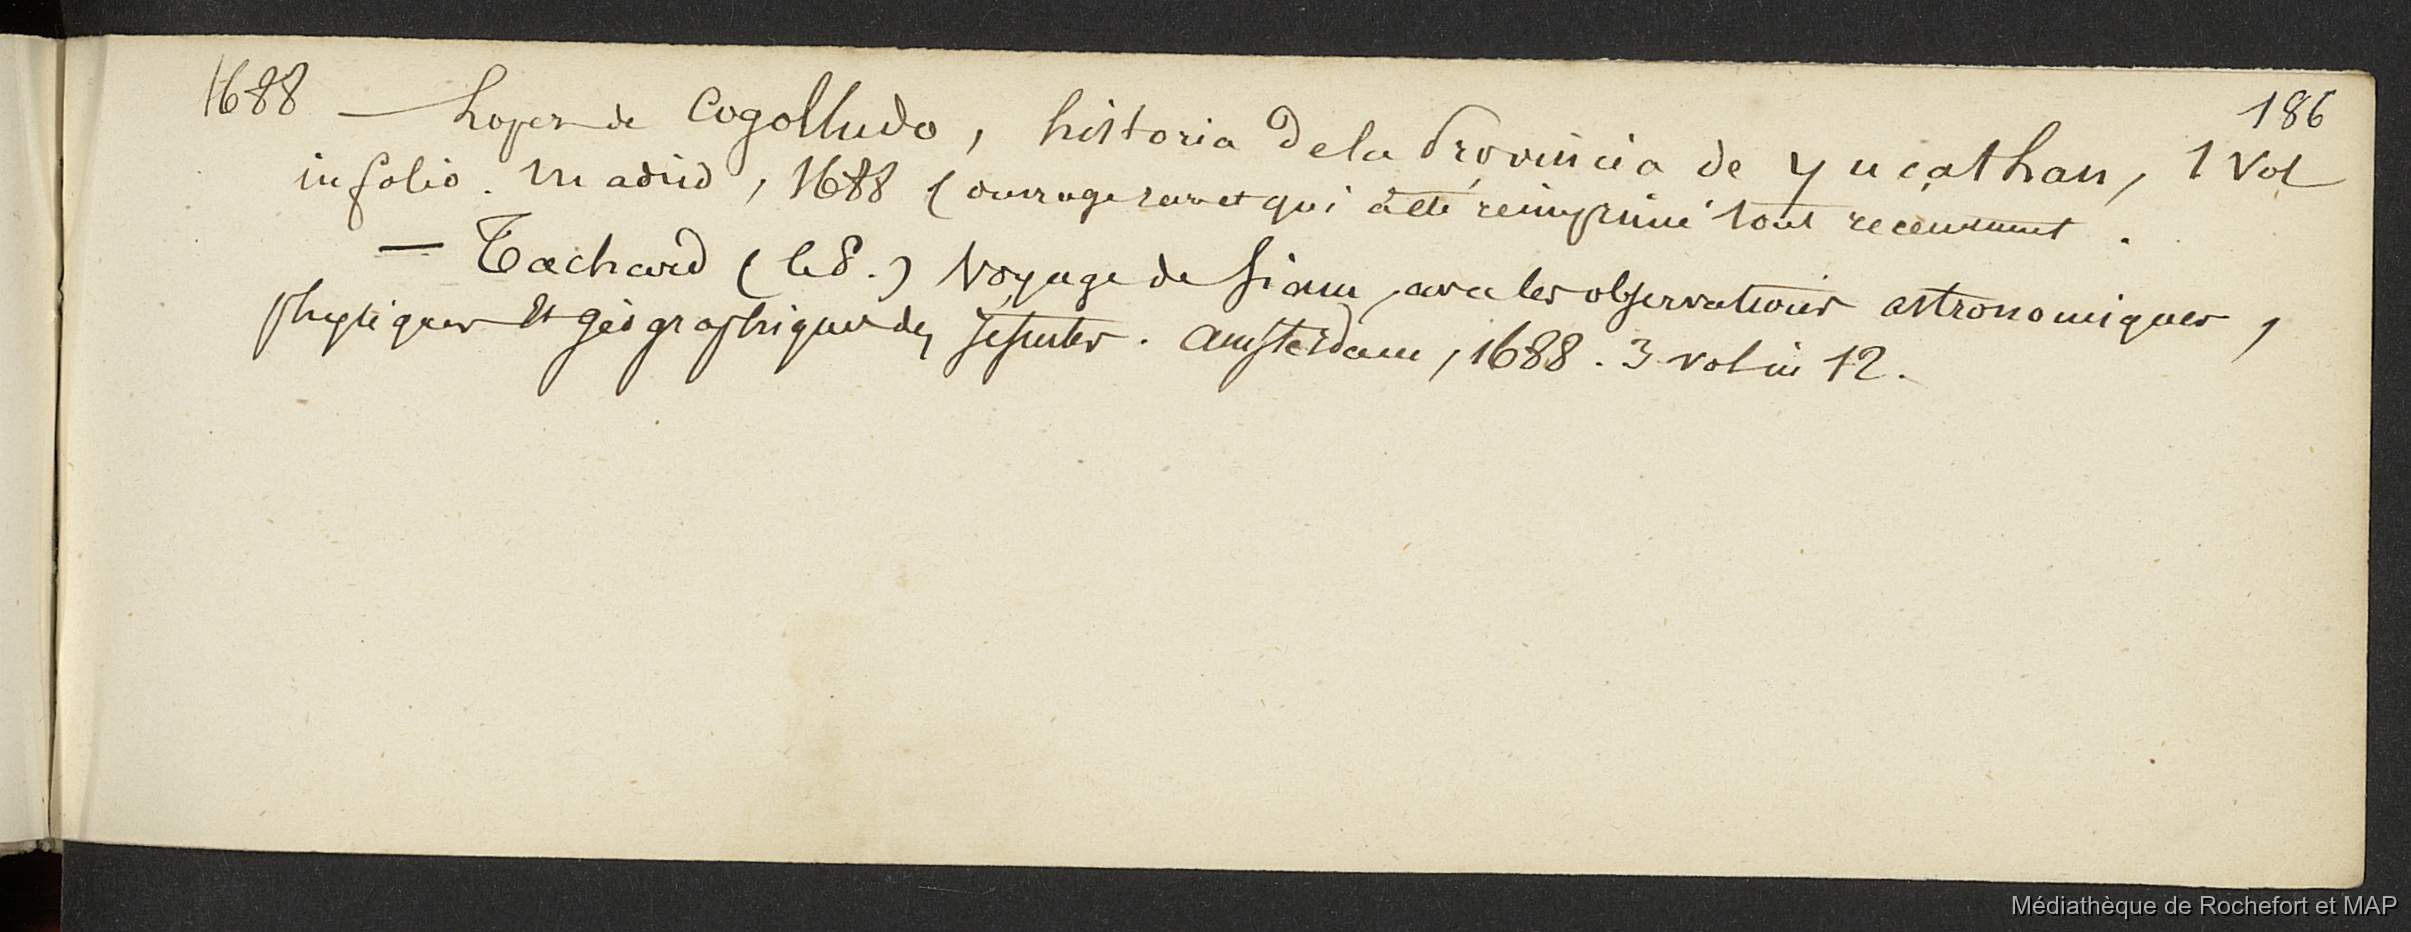 186
1688 — Lopez de Cogolludo, historia de la Provincia de Yucathan, 1 Vol
in folio. Madrid, 1688 (ouvrage rare et qui a été réimprimé tout récemment.
— Tachard (le P.) Voyage de Siam, avec les observations astronomiques,
physiques et géographiques des Jésuites. Amsterdam, 1688. 3 vol in 12.
Médiathèque de Rochefort et MAP